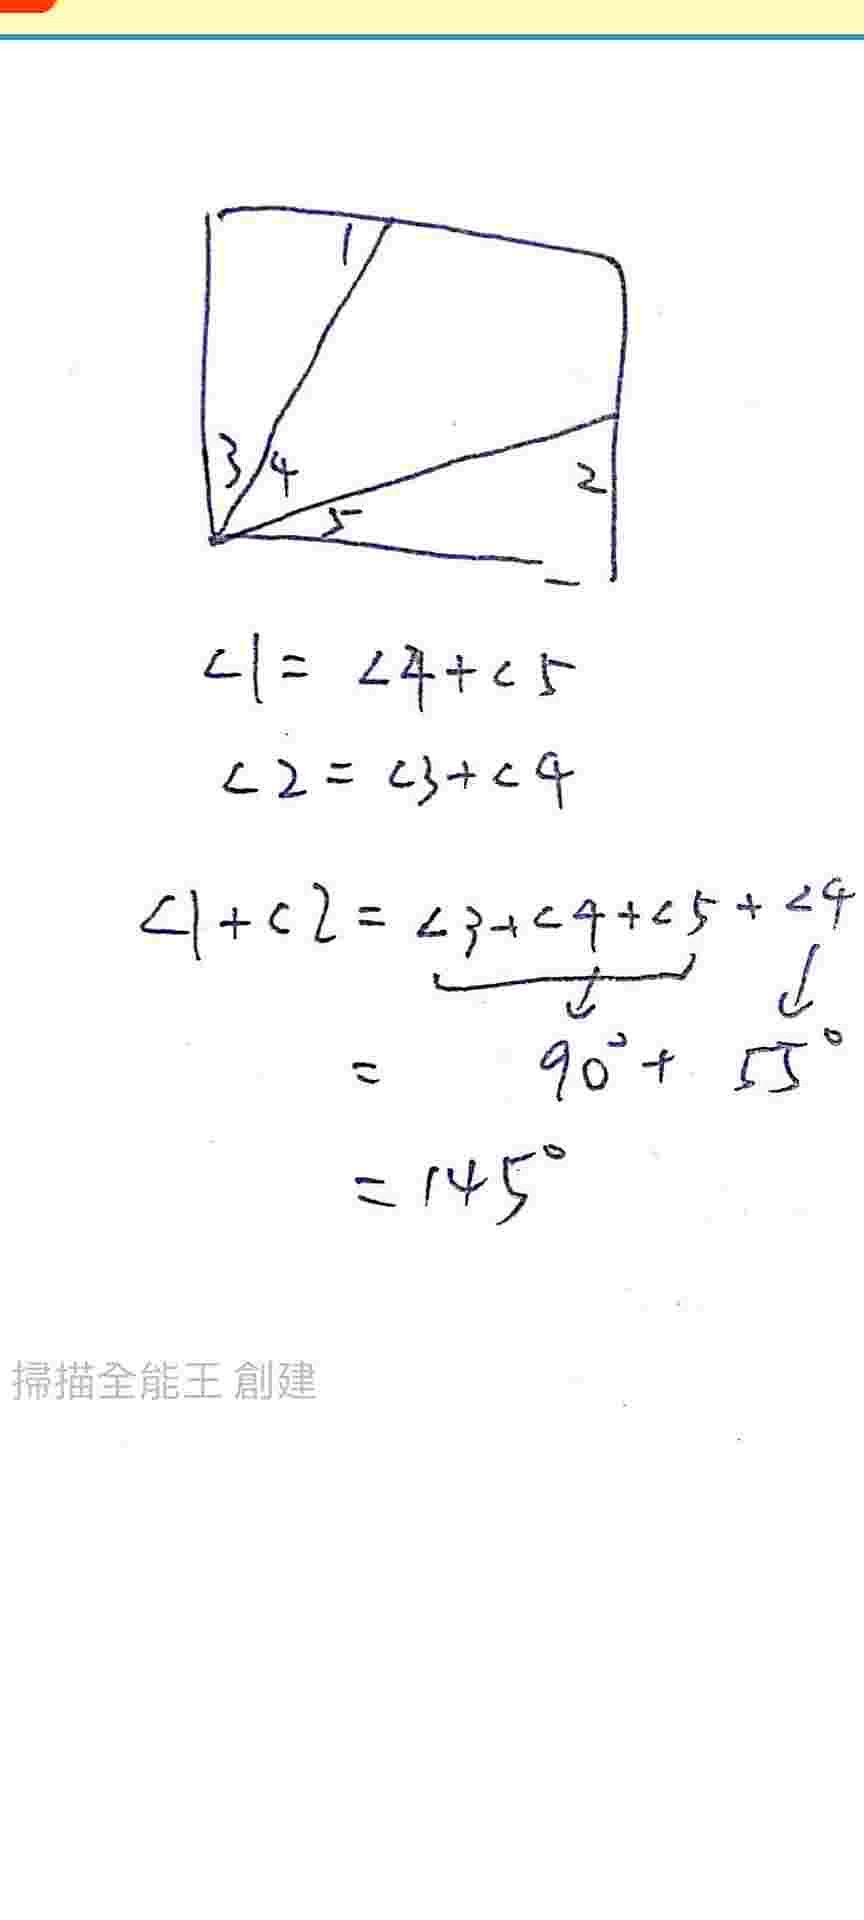 1
3 4
2
5
∠1 = ∠4 + ∠5
∠2 = ∠3 + ∠4
∠1 + ∠2 = ∠3 + ∠4 + ∠5 + ∠4
= 90° + 55°
= 145°
掃描全能王 創建